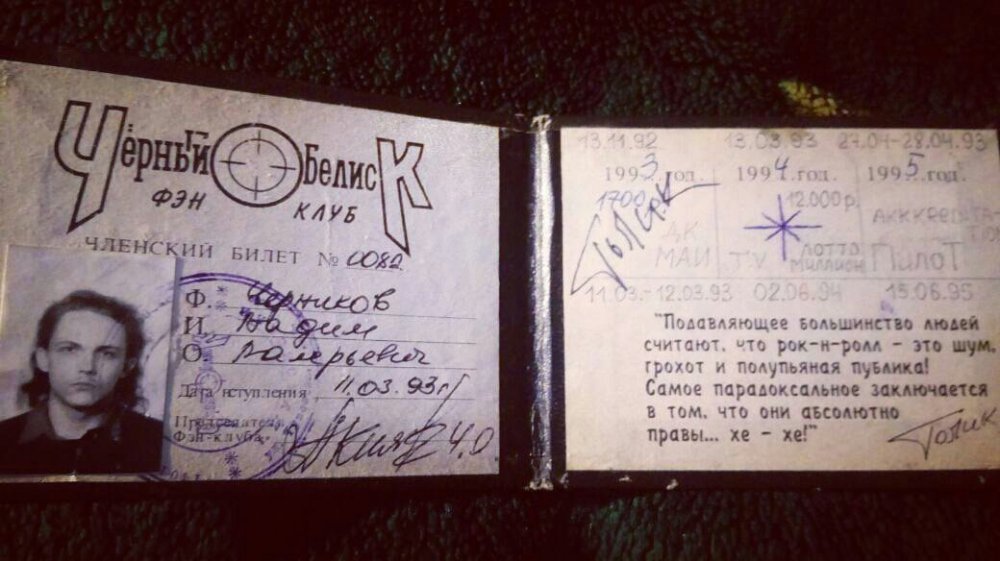 Чёрный Обелиск
ФЭН КЛУБ
ЧЛЕНСКИЙ БИЛЕТ № 0082
Ф. Черников
И. Вадим
О. Валерьевич
Дата вступления 11.03.93г
Председатель
Фэн-клуба Ч.О.
13.11.92 13.03.93 27.04-28.04.93
1993 год. 1994 год. 1995 год.
1700 12.000р.
ДК
МАИ ЛОТТО
МИЛЛИОН ПИЛОТ
11.03.-12.03.93 02.06.94 15.06.95
"Подавляющее большинство людей
считают, что рок-н-ролл - это шум,
грохот и полупьяная публика!
Самое парадоксальное заключается
в том, что они абсолютно
правы... хе - хе!"